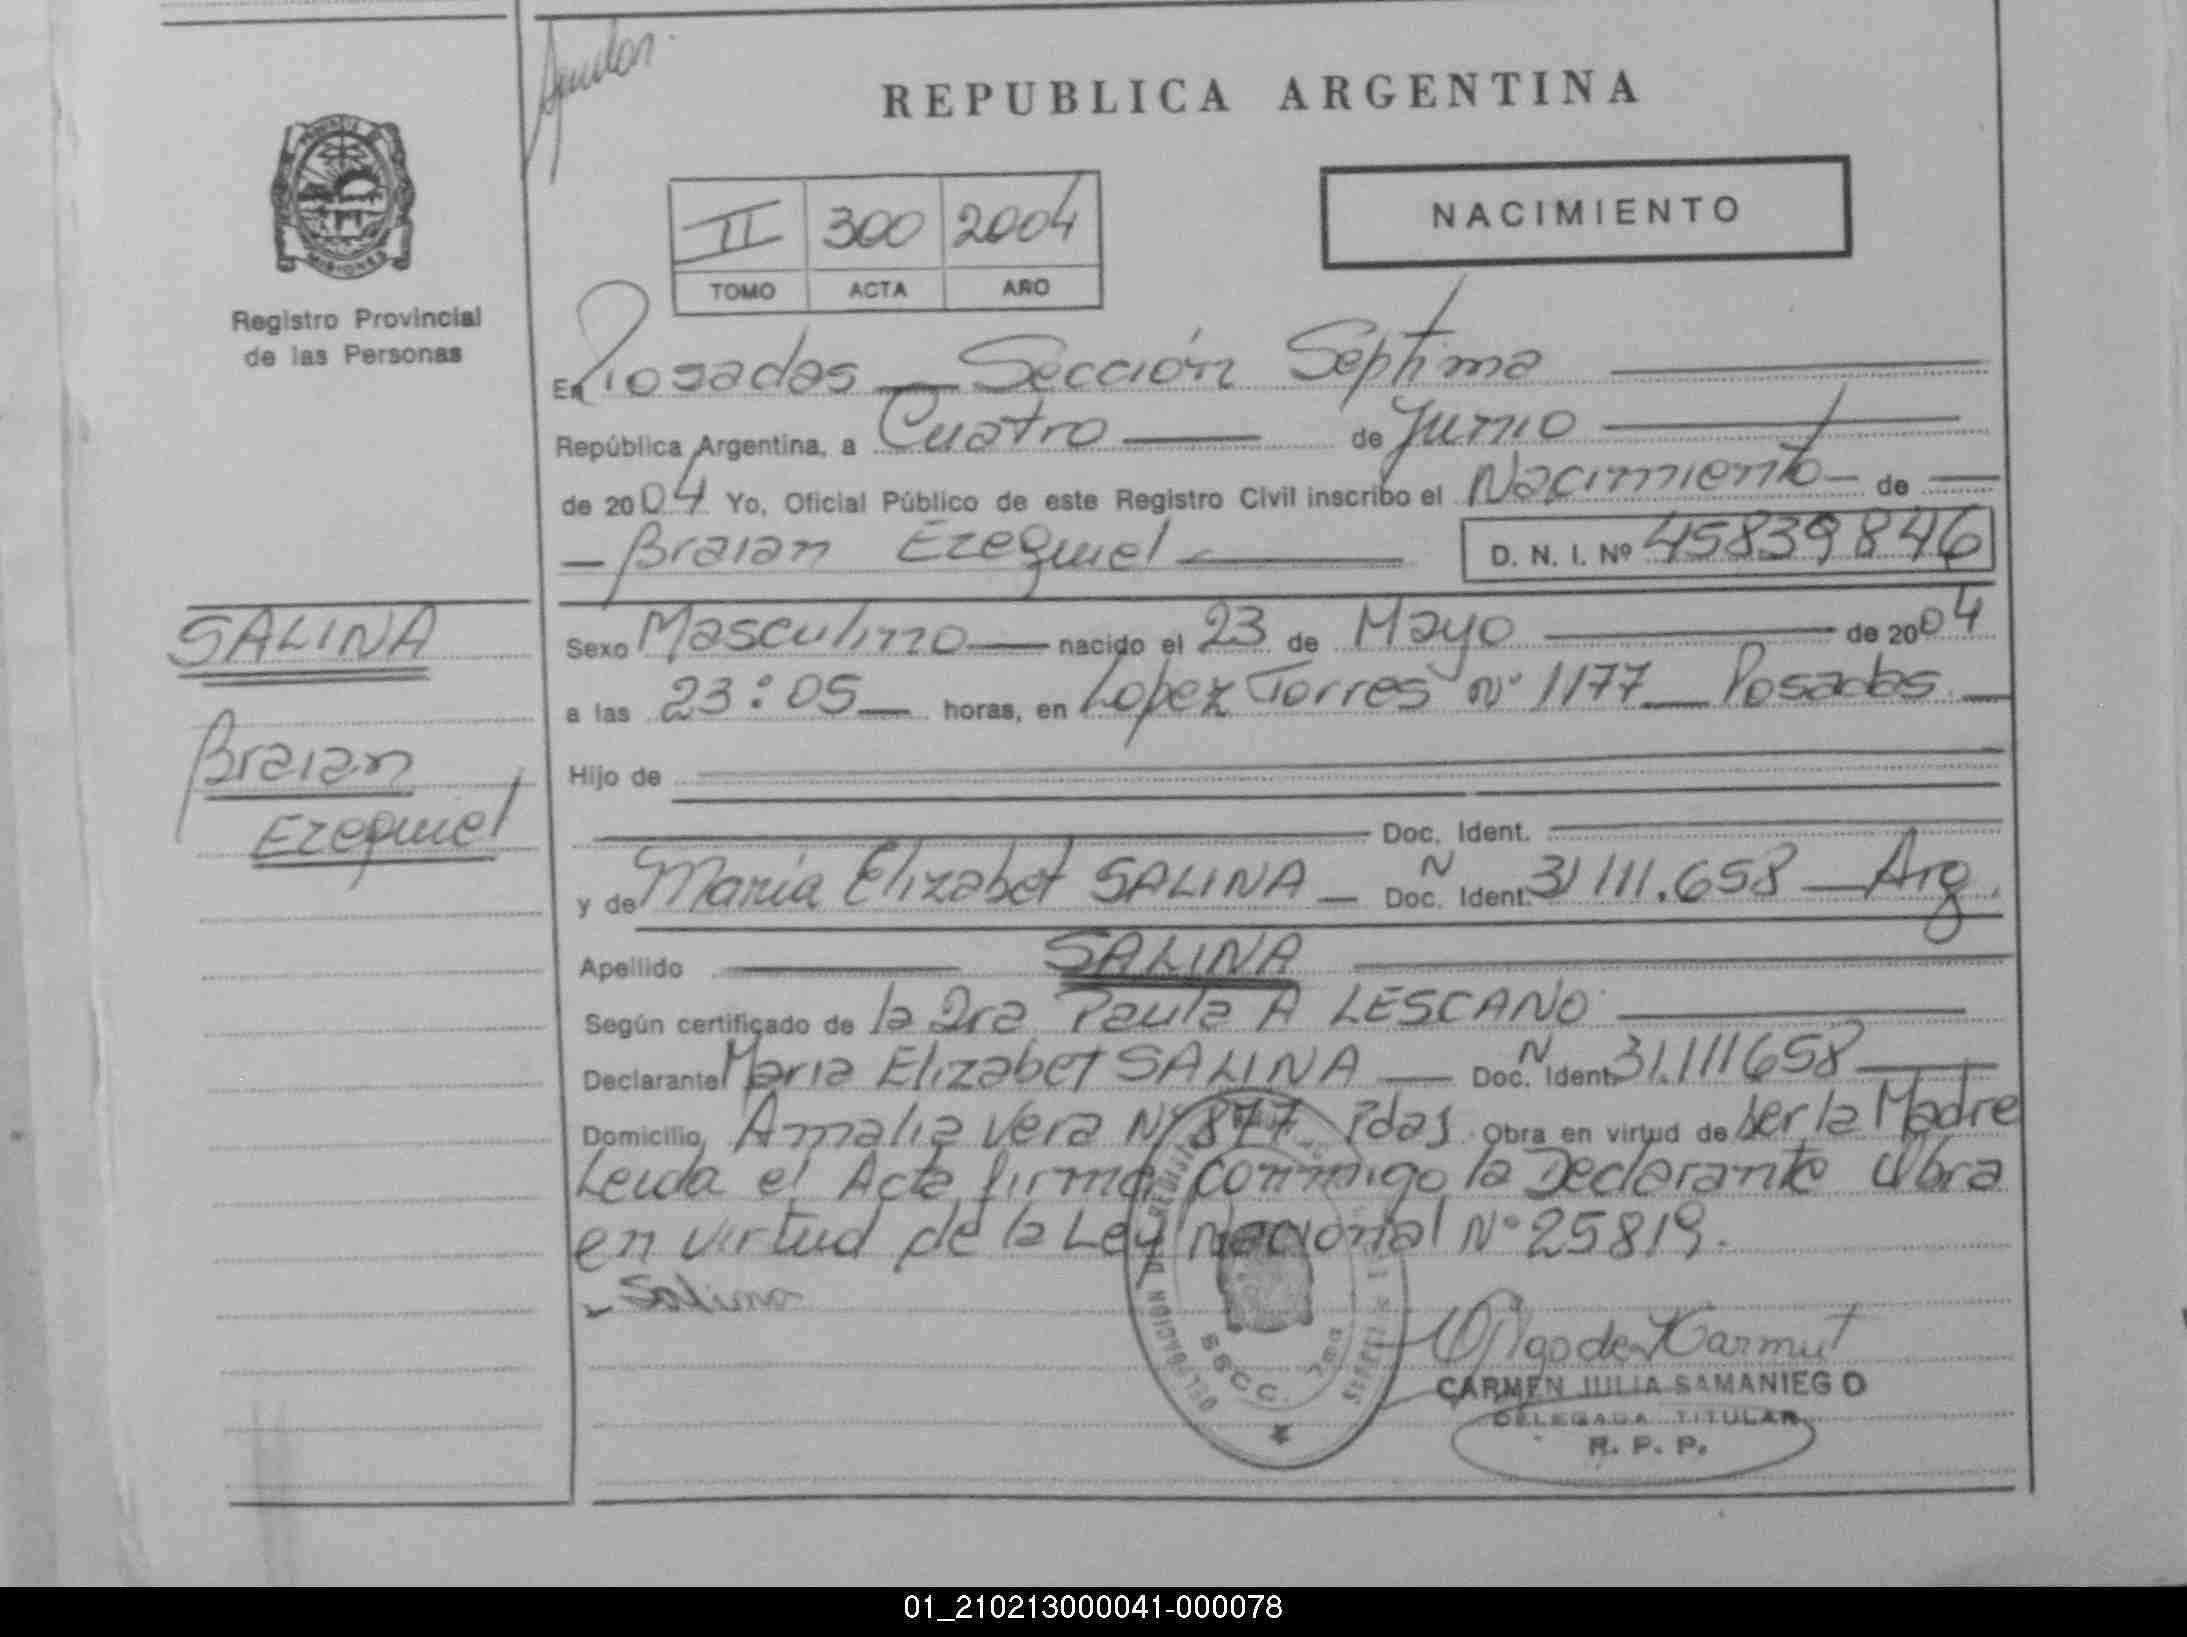 REPUBLICA ARGENTINA
MISIONES
Registro Provincial
de las Personas
NACIMIENTO
II 300 2004
TOMO ACTA AÑO
En Posadas Sección Séptima
República Argentina, a Cuatro de Junio
de 2004 Yo, Oficial Público de este Registro Civil inscribo el Nacimiento de
Braian Ezequiel D. N. I. Nº 45839846
SALINA
Braian
Ezequiel
Sexo Masculino nacido el 23 de Mayo de 2004
a las 23:05 horas, en Lopez Torres Nº 1177 Posadas
Hijo de
Doc. Ident.
y de Maria Elizabet SALINA Doc. N Ident. 31111.658 Arg.
Apellido SALINA
Según certificado de la Dra Paula A LESCANO
Declarante Maria Elizabet SALINA Doc. N Ident. 31.111658
Domicilio Amalia Vera Nº 877 Pdas Obra en virtud de ser la Madre
Leida el Acta firma conmigo la Declarante Obra
en virtud de la Ley Nacional Nº 25819.
Salina
DELEGACION
SSCC. 7ma
CARMEN JULIA SAMANIEGO
DELEGADA TITULAR
R. P. P.
01_210213000041-000078